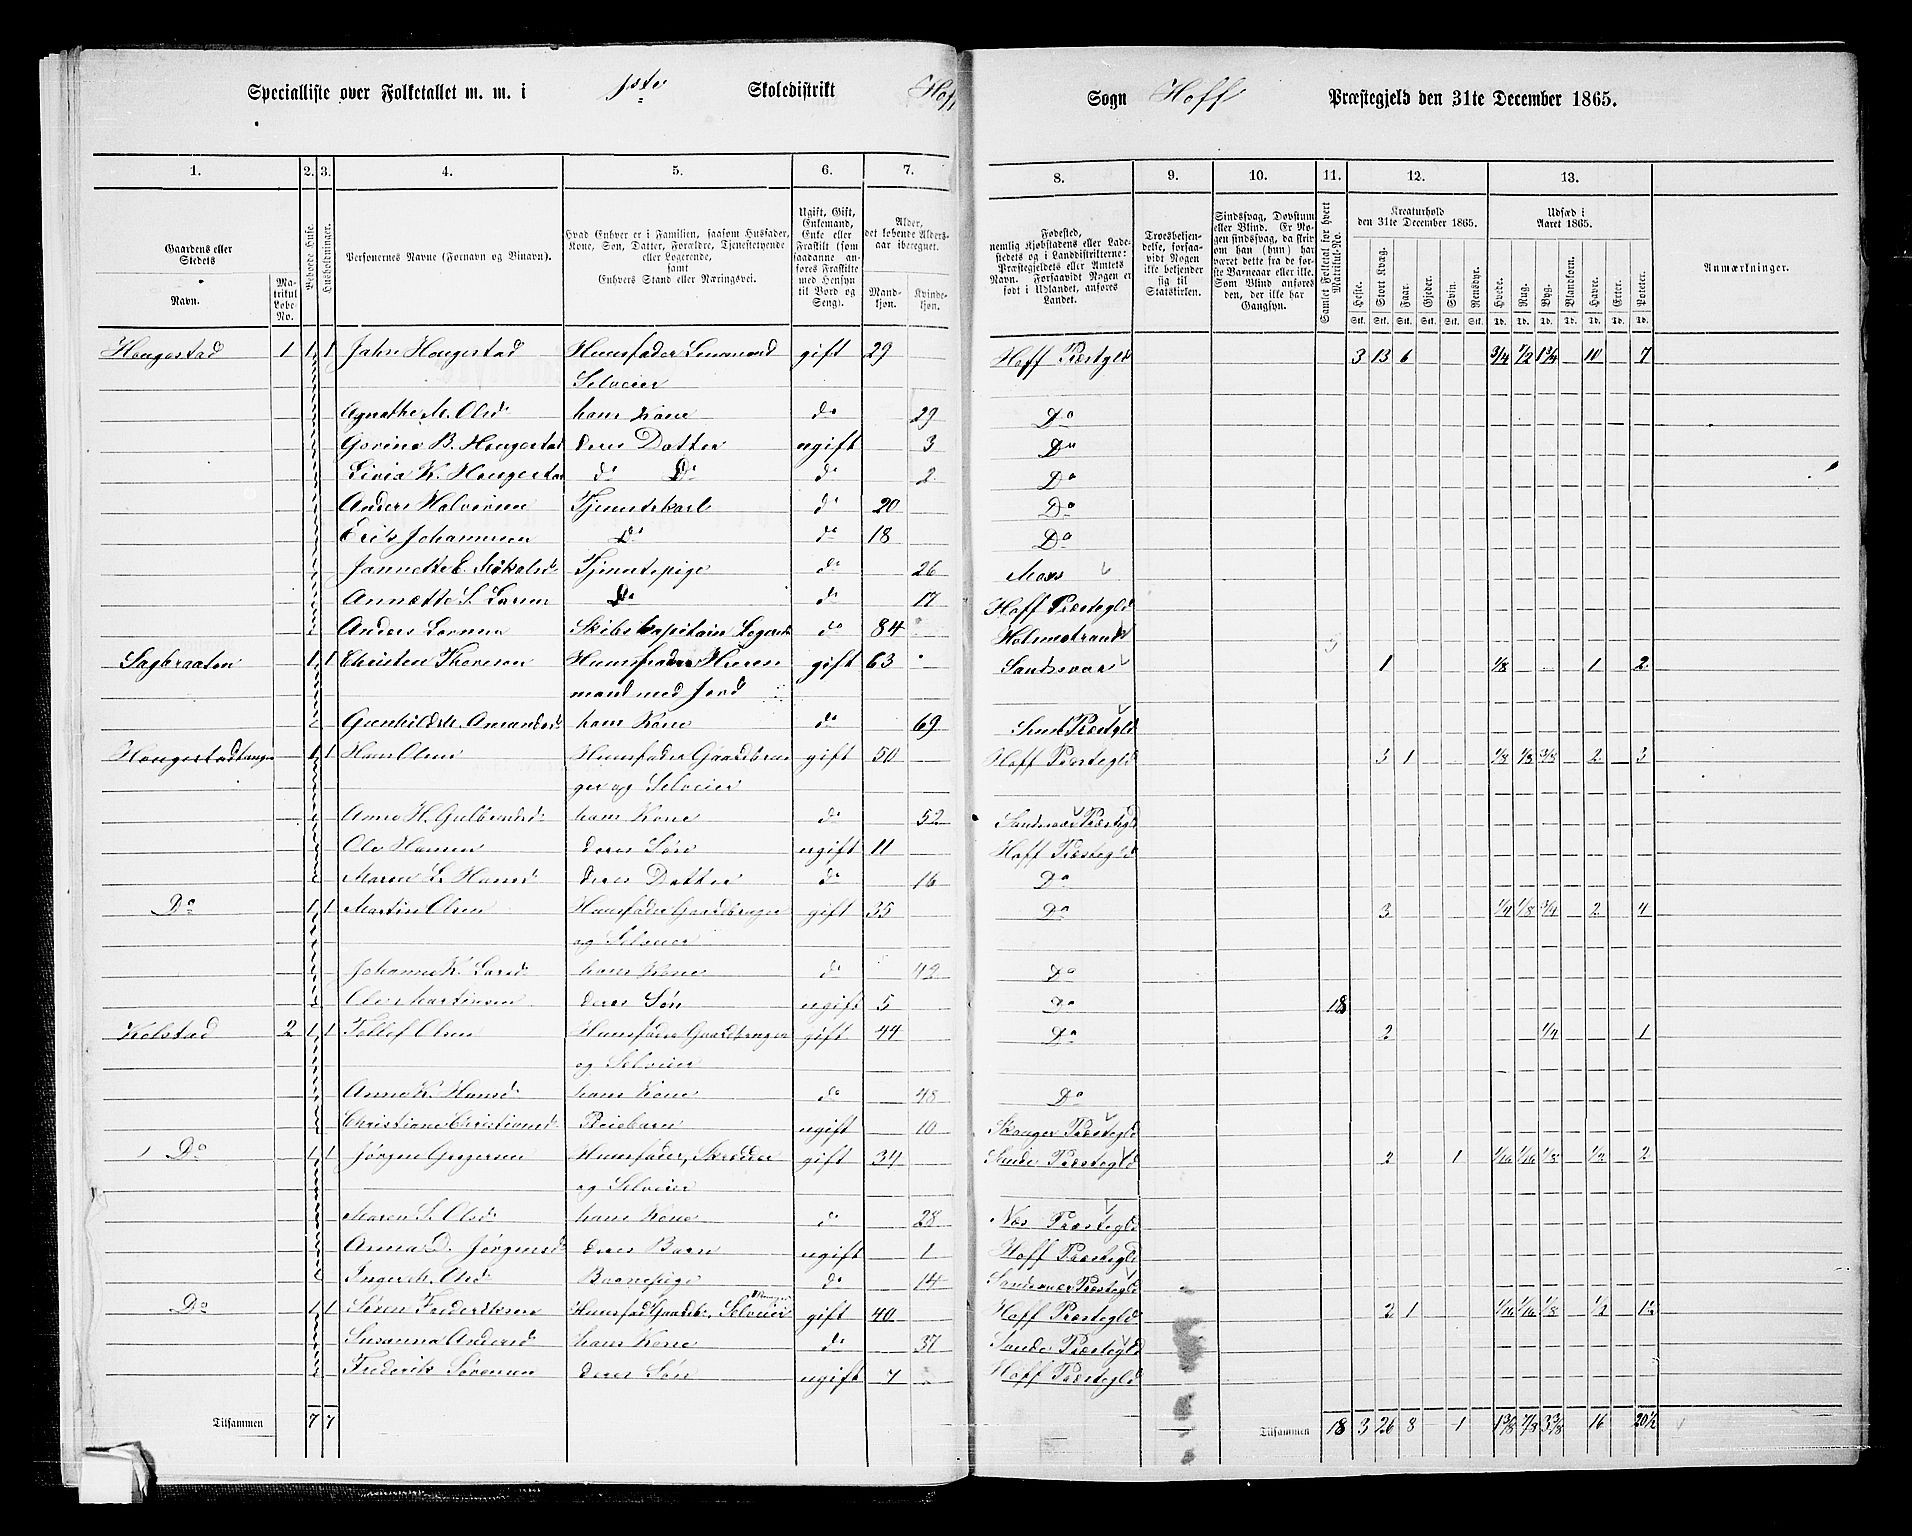 Specialliste over Folketallet m. m. i 1ste Skoledistrikt Hoff Sogn Hoff Præstegjeld den 31te December 1865.
1. 2. 3. 4. 5. 6. 7. 8. 9. 10. 11. 12. 13.
Gaardens eller Stedets Navn. Matrikul Løbe-No. Beboede Huse. Husholdninger. Personernes Navne (Fornavn og Binavn).
Hvad Enhver er i Familien, saasom Husfader, Kone, Søn, Datter, Forældre, Tjenestetyende eller Logerende, samt Enhvers Stand eller Næringsvei.
Ugift, Gift, Enkemand, Enke eller Fraskilt (som saadanne anføres Fraskilte med Hensyn til Bord og Seng).
Alder, det løbende Aldersaar iberegnet. Mandkjøn. Kvindekjøn.
Fødested, nemlig Kjøbstadens eller Ladestedets og i Landdistrikterne: Præstegjeldets eller Amtets Navn. Forsaavidt Nogen er født i Udlandet, anføres Landet.
Troesbekjendelse, forsaavidt Nogen ikke bekjender sig til Statskirken.
Sindssvag, Døvstum eller Blind. Er Nogen sindssvag, da skrives om han (hun) har været dette fra de første Barneaar eller ikke. Som Blind anføres den, der ikke har Gangsyn.
Samlet Folketal for hvert Matrikul-No.
Kreaturhold den 31te December 1865. Heste. Stort Kvæg. Faar. Gjeder. Svin. Rensdyr.
Udsæd i Aaret 1865. Hvede. Rug. Byg. Blandkorn. Havre. Erter. Poteter.
Anmærkninger.
Stk. Stk. Stk. Stk. Stk. Stk. Td. Td. Td. Td. Td. Td. Td.
Hougestad 1 1 1 Hougestad Husfader gift 29 Hoff Præstgld 3 13 6 3/4 1/2 1 3/4 10 7
Selveier
Agnethe M. Olsd. hans Kone do 29 Do
B. Hougestad deres Datter ugift 3 Do
K. Hougestad do Do do 2 Do
Anders Tjenestekarl do 20 Do
Johannesen Do do 18 Do
Tjenestepige do 26 Moss
S. Do do 17 Hoff Præstegld
Anders Skibskapitain do 84 Holmestrand
Sagbraaten 1 1 Christen Thoresen Husfader gift 63 Sandsvær 1 1/8 1 2
mand med Jord
hans Kone do 69 Præstgld
1 1 Hans Olsen Husfader Gaardbru gift 50 Hoff Præstegld 3 1 1/8 1/8 3/8 2 3
ger og Selveier
Anne H. Gulbrands. hans Kone do 52 Sandsvær Præstegld
Ole Hansen deres Søn ugift 11 Hoff Præstegld
Maren L. Hansd. deres Datter do 16 Do
Do 1 1 Martin Olsen Husfader Gaardbruger gift 35 Do 3 1/4 1/8 3/4 2 4
og Selveier
Johanne K. Larsd. hans Kone do 42 Do
Ole Martinsen deres Søn ugift 5 Do 18
Kolstad 2 1 1 Tollef Olsen Husfader Gaardbruger gift 44 Do 2 1/4 1
og Selveier
Anne K. Hansd. hans Kone do 48 Do
Christiane Christiansd. Pleiebarn ugift 10 Præstegld
Do 1 1 Jørgen Gregersen Husfader, Skrædder gift 34 Sande Præstegld 2 1 1/16 1/16 1/8 1/2 2
og Selveier
Maren S. Olsd. hans Kone do 28 Næs Præstegld
Anna D. Jørgensd. deres Barn ugift 1 Hoff Præstegld
Inger M. Olsd. Barnepige do 14 Sandsvær Præstegld
Do 1 1 Søren Frederiksen Husfad. Gaardbr. Selveier gift 40 Hoff Præstegld 2 1 1/16 1/16 1/8 1/2 1 1/2
Susanna Andersd. hans Kone do 37 Sande Præstegld
Frederik Sørensen deres Søn ugift 7 Hoff Præstegld
Tilsammen 7 7 Tilsammen 18 3 26 8 1 1 3/8 7/8 3 3/8 16 20 1/2